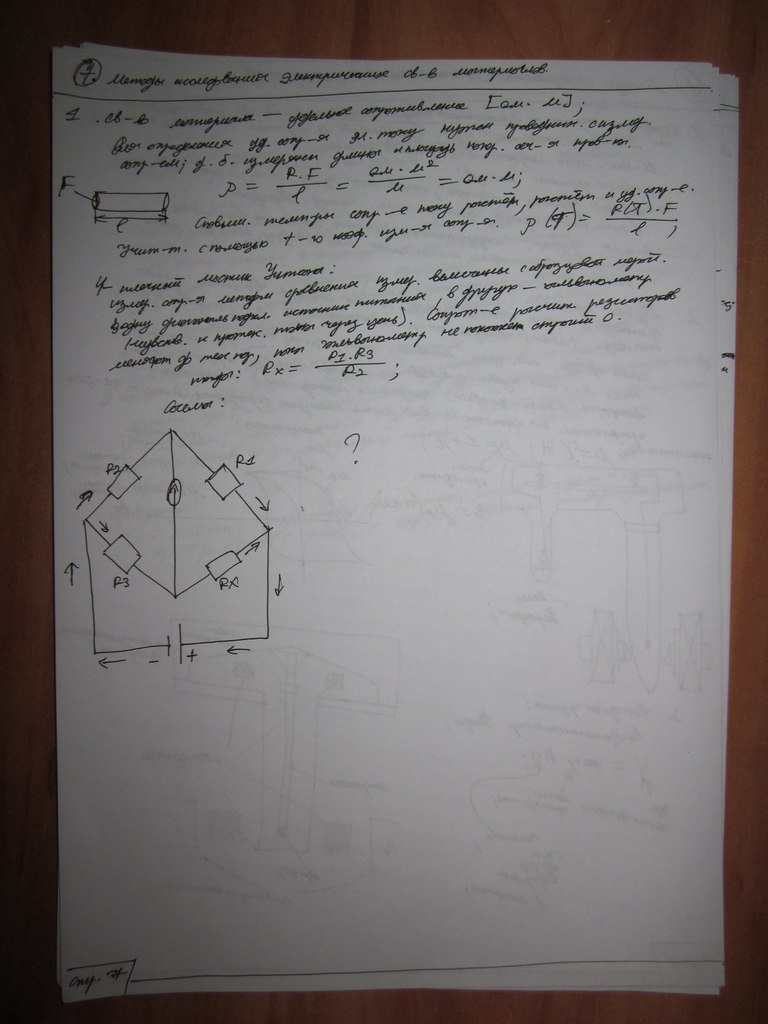 7. Методы исследования электрических св-в материалов.
1. св-во материала — удельное сопротивление [ом·м];
Для определения уд. сопр-я эл. току нужен проводник с измер.
сопр-ем; д. б. измерены длина и площадь попер. сеч-я пров-ка.
F
ρ = R·F / l = ом·м² / м = ом·м;
l
С повыш. темп-ры сопр-е току растёт, растёт и уд. сопр-е.
Учит-т. с помощью t-го коэф. изм-я сопр-я. ρ(T) = R(T)·F / l;
4 плечный мостик Уитсона:
измер. сопр-я методом сравнения измер. величины с образцовой мерой.
В одну диагональ подкл. источник питания, в другую — гальванометр
(чувств. к протек. тока через цепь). Сопрот-е резисторов
меняют до тех пор, пока гальванометр не покажет строго 0.
тогда: Rx = R1·R3 / R2;
Схемы:
?
R2
R1
R3
Rx
- +
стр. 7